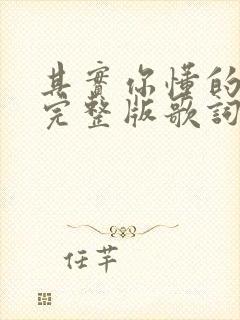 其實你懂的
完整版歌詞
任芊